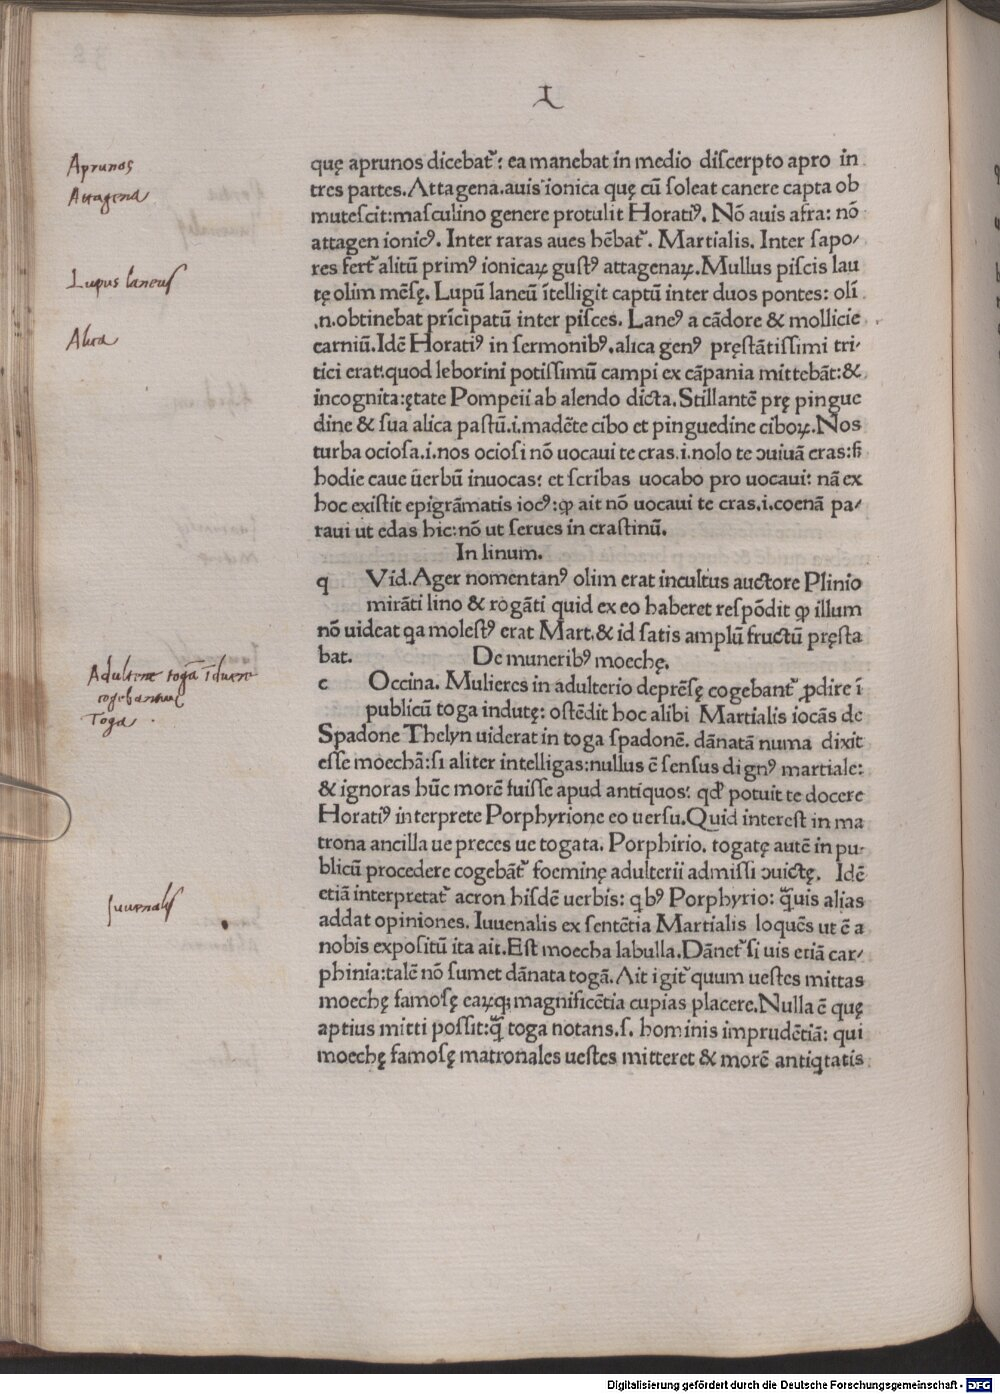 I
Aprunos
Attagena
Lupus laneus
Alica
Adulterae togā īduere
cogebantur
Toga
Iuuenalis
quę aprunos dicebat᷑: ea manebat in medio diſcerpto apro in
tres partes. Attagena. auis ionica quę cū ſoleat canere capta ob
muteſcit: maſculino genere protulit Horatiꝰ. Nō auis afra: nō
attagen ionicꝰ. Inter raras aues hēbat᷑. Martialis. Inter ſapo⸗
res fert᷑ alitū primꝰ ionicaꝝ guſtꝰ attagenaꝝ. Mullus piſcis lau
tę olim mēſę. Lupū laneū ītelligit captū inter duos pontes: olī
.n. obtinebat prīcipatū inter piſces. Laneꝰ a cādore & mollicie
carniū. Idē Horatiꝰ in ſermonibꝰ. alica genꝰ pręſtātiſſimi tri⸗
tici erat: quod leborini potiſſimū campi ex cāpania mittebāt: &
incognita: ętate Pompeii ab alendo dicta. Stillantē prę pingue
dine & ſua alica paſtū. i. madēte cibo et pinguedine ciboꝝ. Nos
turba ocioſa. i. nos ocioſi nō uocaui te cras. i. nolo te ꝯuiuā eras: ſi
hodie caue uerbū inuocas: et ſcribas uocabo pro uocaui: nā ex
hoc exiſtit epigrāmatis iocꝰ: ꝙ ait nō uocaui te cras. i. coenā pa⸗
raui ut edas hic: nō ut ſerues in craſtinū.
In linum.
q Vid. Ager nomentanꝰ olim erat incultus auctore Plinio
mirāti lino & rogāti quid ex eo haberet reſpōdit ꝙ illum
nō uideat qa moleſtꝰ erat Mart. & id ſatis amplū fructū pręſta
bat. De muneribꝰ moechę.
c Occina. Mulieres in adulterio deprēſę cogebant᷑ ꝓdire ī
publicū toga indutę: oſtēdit hoc alibi Martialis iocās de
Spadone Thelyn uiderat in toga ſpadonē. dānatā numa dixit
eſſe moechā: ſi aliter intelligas: nullus ē ſenſus dignꝰ martiale:
& ignoras hūc morē fuiſſe apud antiquos: qđ potuit te docere
Horatiꝰ interprete Porphyrione eo uerſu. Quid intereſt in ma
trona ancilla ue preces ue togata. Porphirio. togatę autē in pu⸗
blicū procedere cogebāt᷑ foeminę adulterii admiſſi ꝯuictę. Idē
etiā interpretat᷑ acron hiſdē uerbis: qbꝰ Porphyrio: q̄uis alias
addat opiniones. Iuuenalis ex ſentētia Martialis loquēs ut ē a
nobis expoſitū ita ait. Eſt moecha labulla. Dānet᷑ ſi uis etiā car⸗
phinia: talē nō ſumet dānata togā. Ait igit᷑ quum ueſtes mittas
moechę famoſę eaꝝq; magnificētia cupias placere. Nulla ē quę
aptius mitti poſſit: q̄ toga notans. ſ. hominis imprudētiā: qui
moechę famoſę matronales ueſtes mitteret & morē antiqtatis
Digitalisierung gefördert durch die Deutsche Forschungsgemeinschaft - DFG